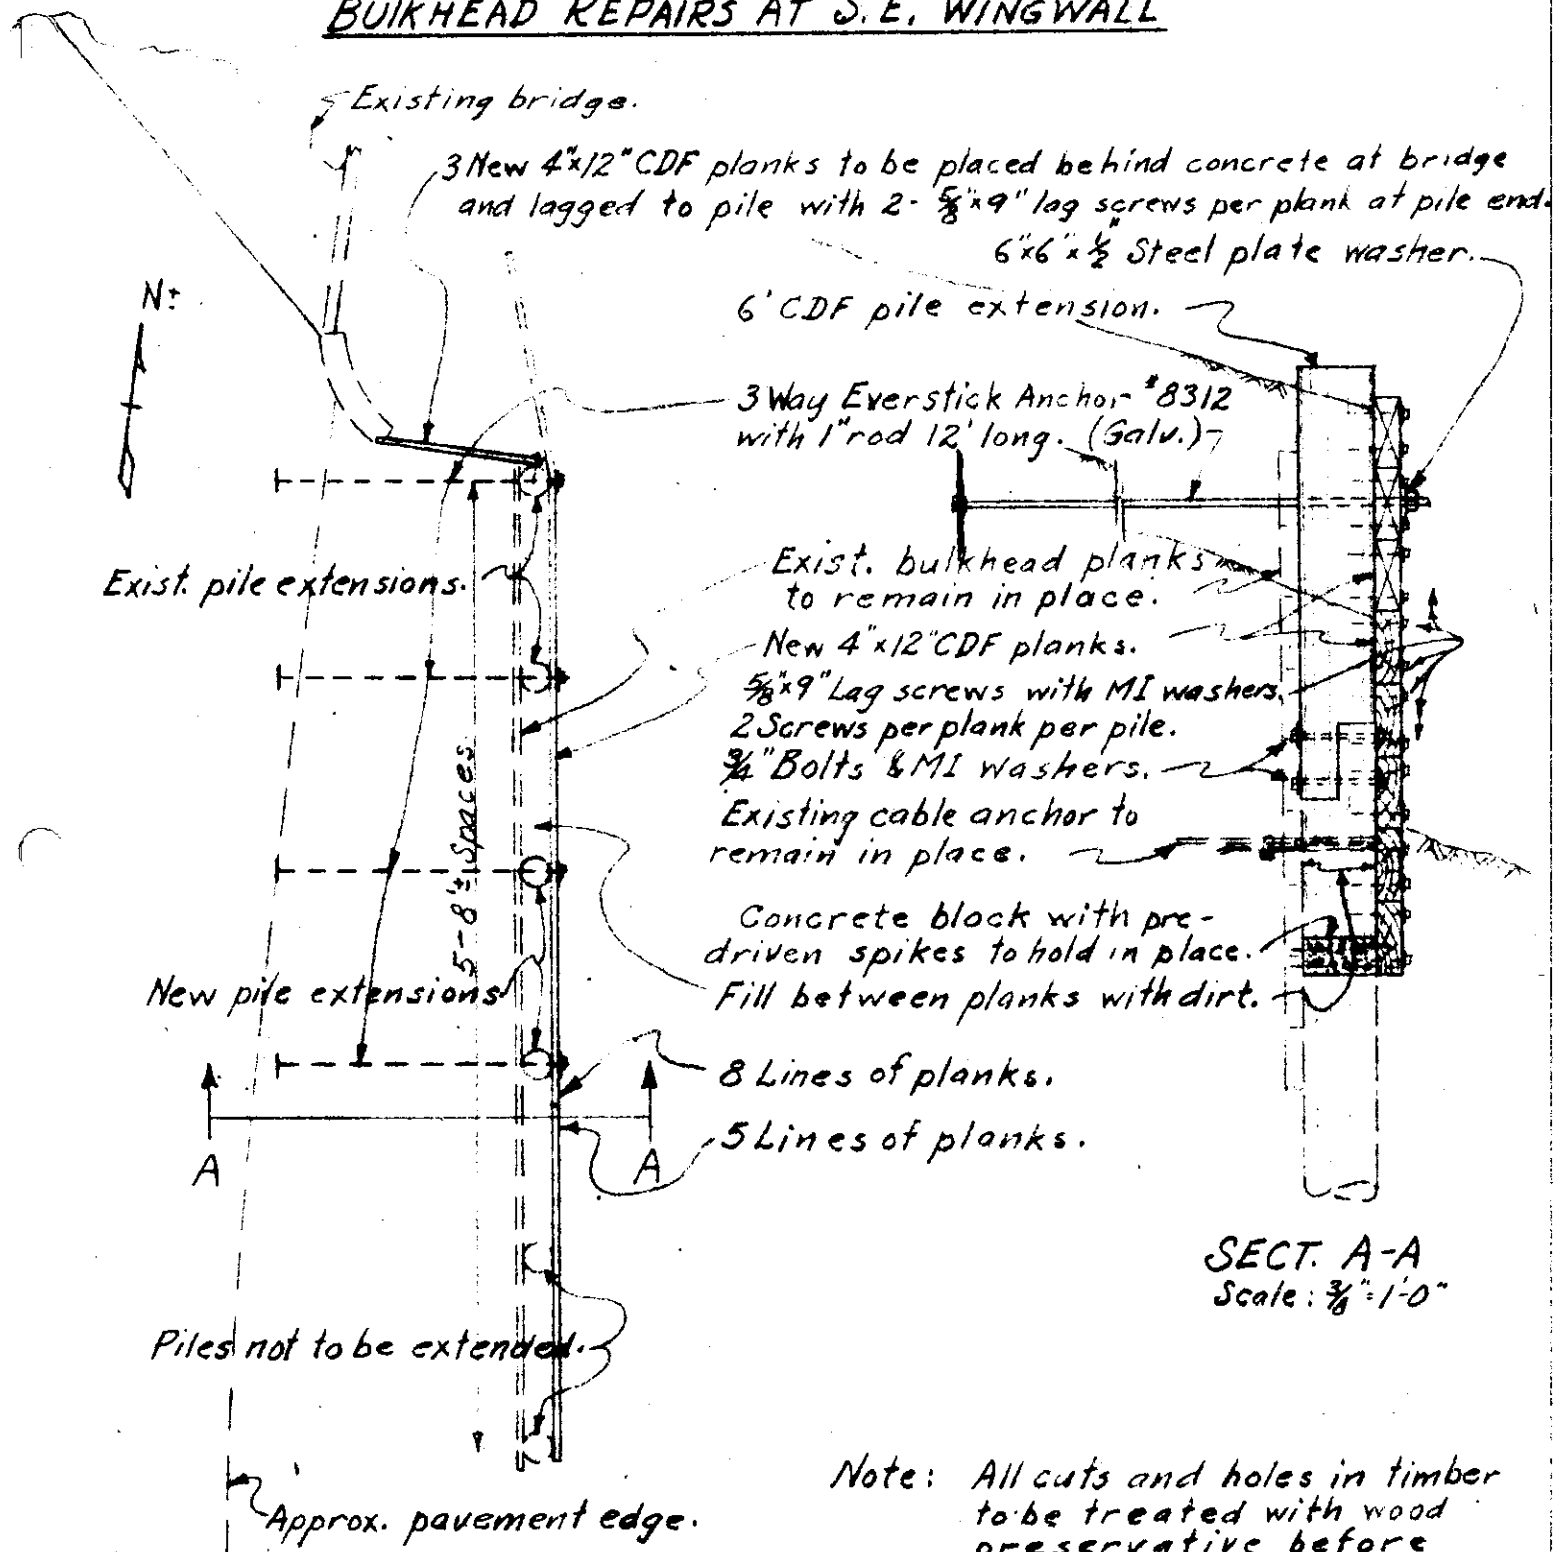 BULKHEAD REPAIRS AT S.E. WINGWALL
Existing bridge.
3 New 4"x12" CDF planks to be placed behind concrete at bridge
and lagged to pile with 2- 5/8"x9" lag screws per plank at pile end.
6"x6"x1/2" Steel plate washer.
N±
6' CDF pile extension.
3 Way Everstick Anchor #8312
with 1" rod 12' long. (Galv.)
Exist. bulkhead planks
to remain in place.
Exist. pile extensions.
New 4"x12" CDF planks.
5/8"x9" Lag screws with MI washers.
2 Screws per plank per pile.
3/4" Bolts & MI washers.
5-8'± Spaces
Existing cable anchor to
remain in place.
Concrete block with pre-
driven spikes to hold in place.
New pile extensions
Fill between planks with dirt.
8 Lines of planks.
5 Lines of planks.
A
A
SECT. A-A
Scale: 3/8"=1'-0"
Piles not to be extended.
Note: All cuts and holes in timber
to be treated with wood
preservative before
Approx. pavement edge.